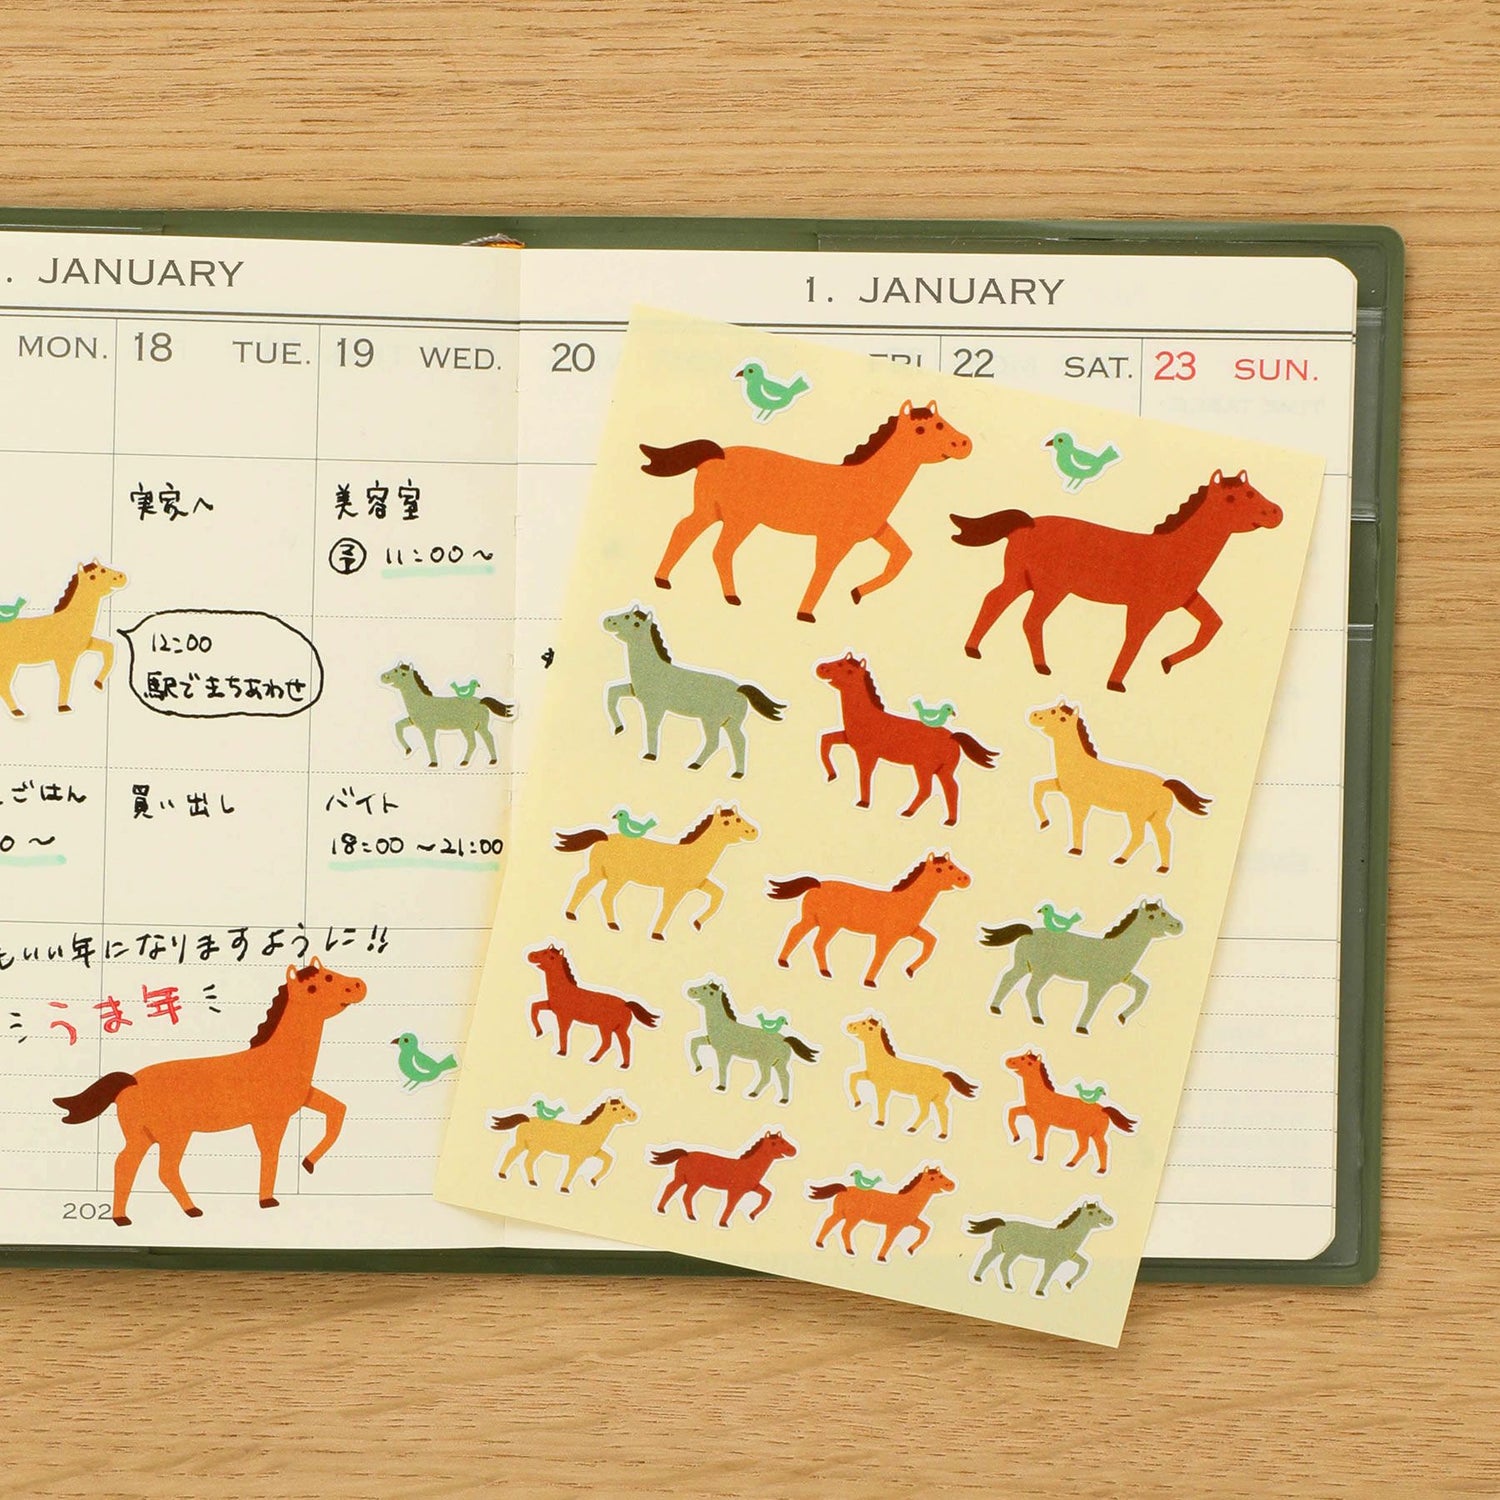 . JANUARY
MON. 18 TUE. 19 WED.
実家へ
美容室
予 11:00〜
12:00
駅でまちあわせ
ごはん
0〜
買い出し
バイト
18:00〜21:00
もいい年になりますように!!
うま年
202
1. JANUARY
20 FRI 22 SAT. 23 SUN.